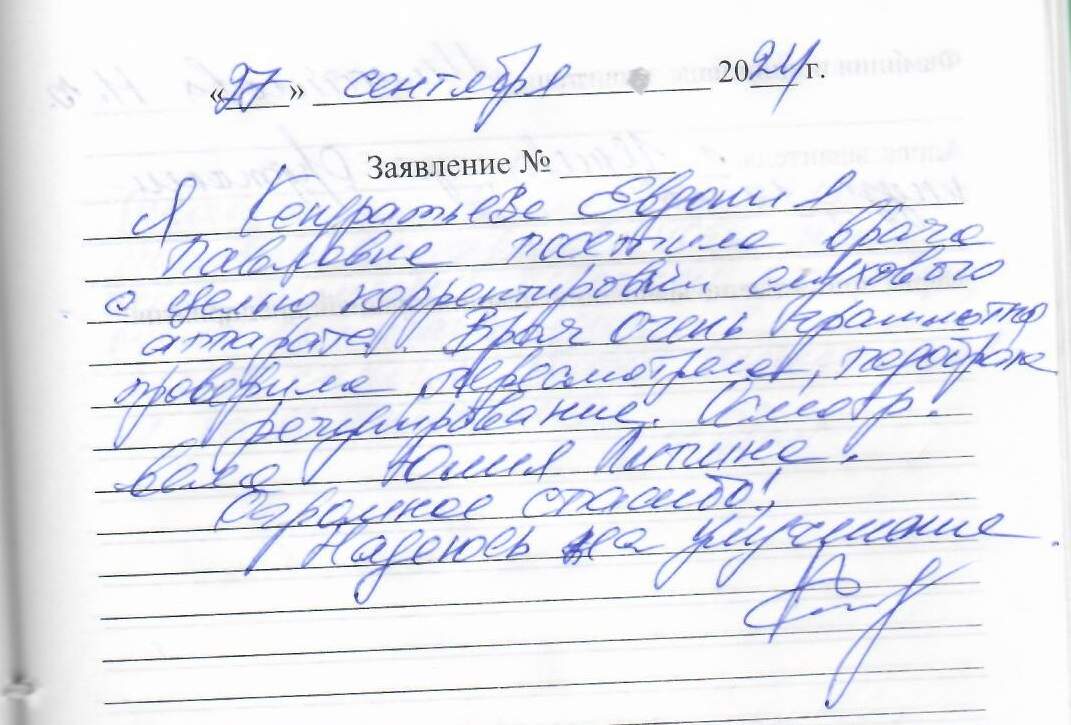 «27» сентября 2024 г.
Заявление №
Я Кондратьева Евдокия
Павловна посетила врача
с целью корректировки слухового
аппарата. Врач очень грамотно
проверила, пересмотрела, подобрала
регулирование. Осмотр.
вела Юлия
Огромное спасибо!
Надеюсь на улучшение.